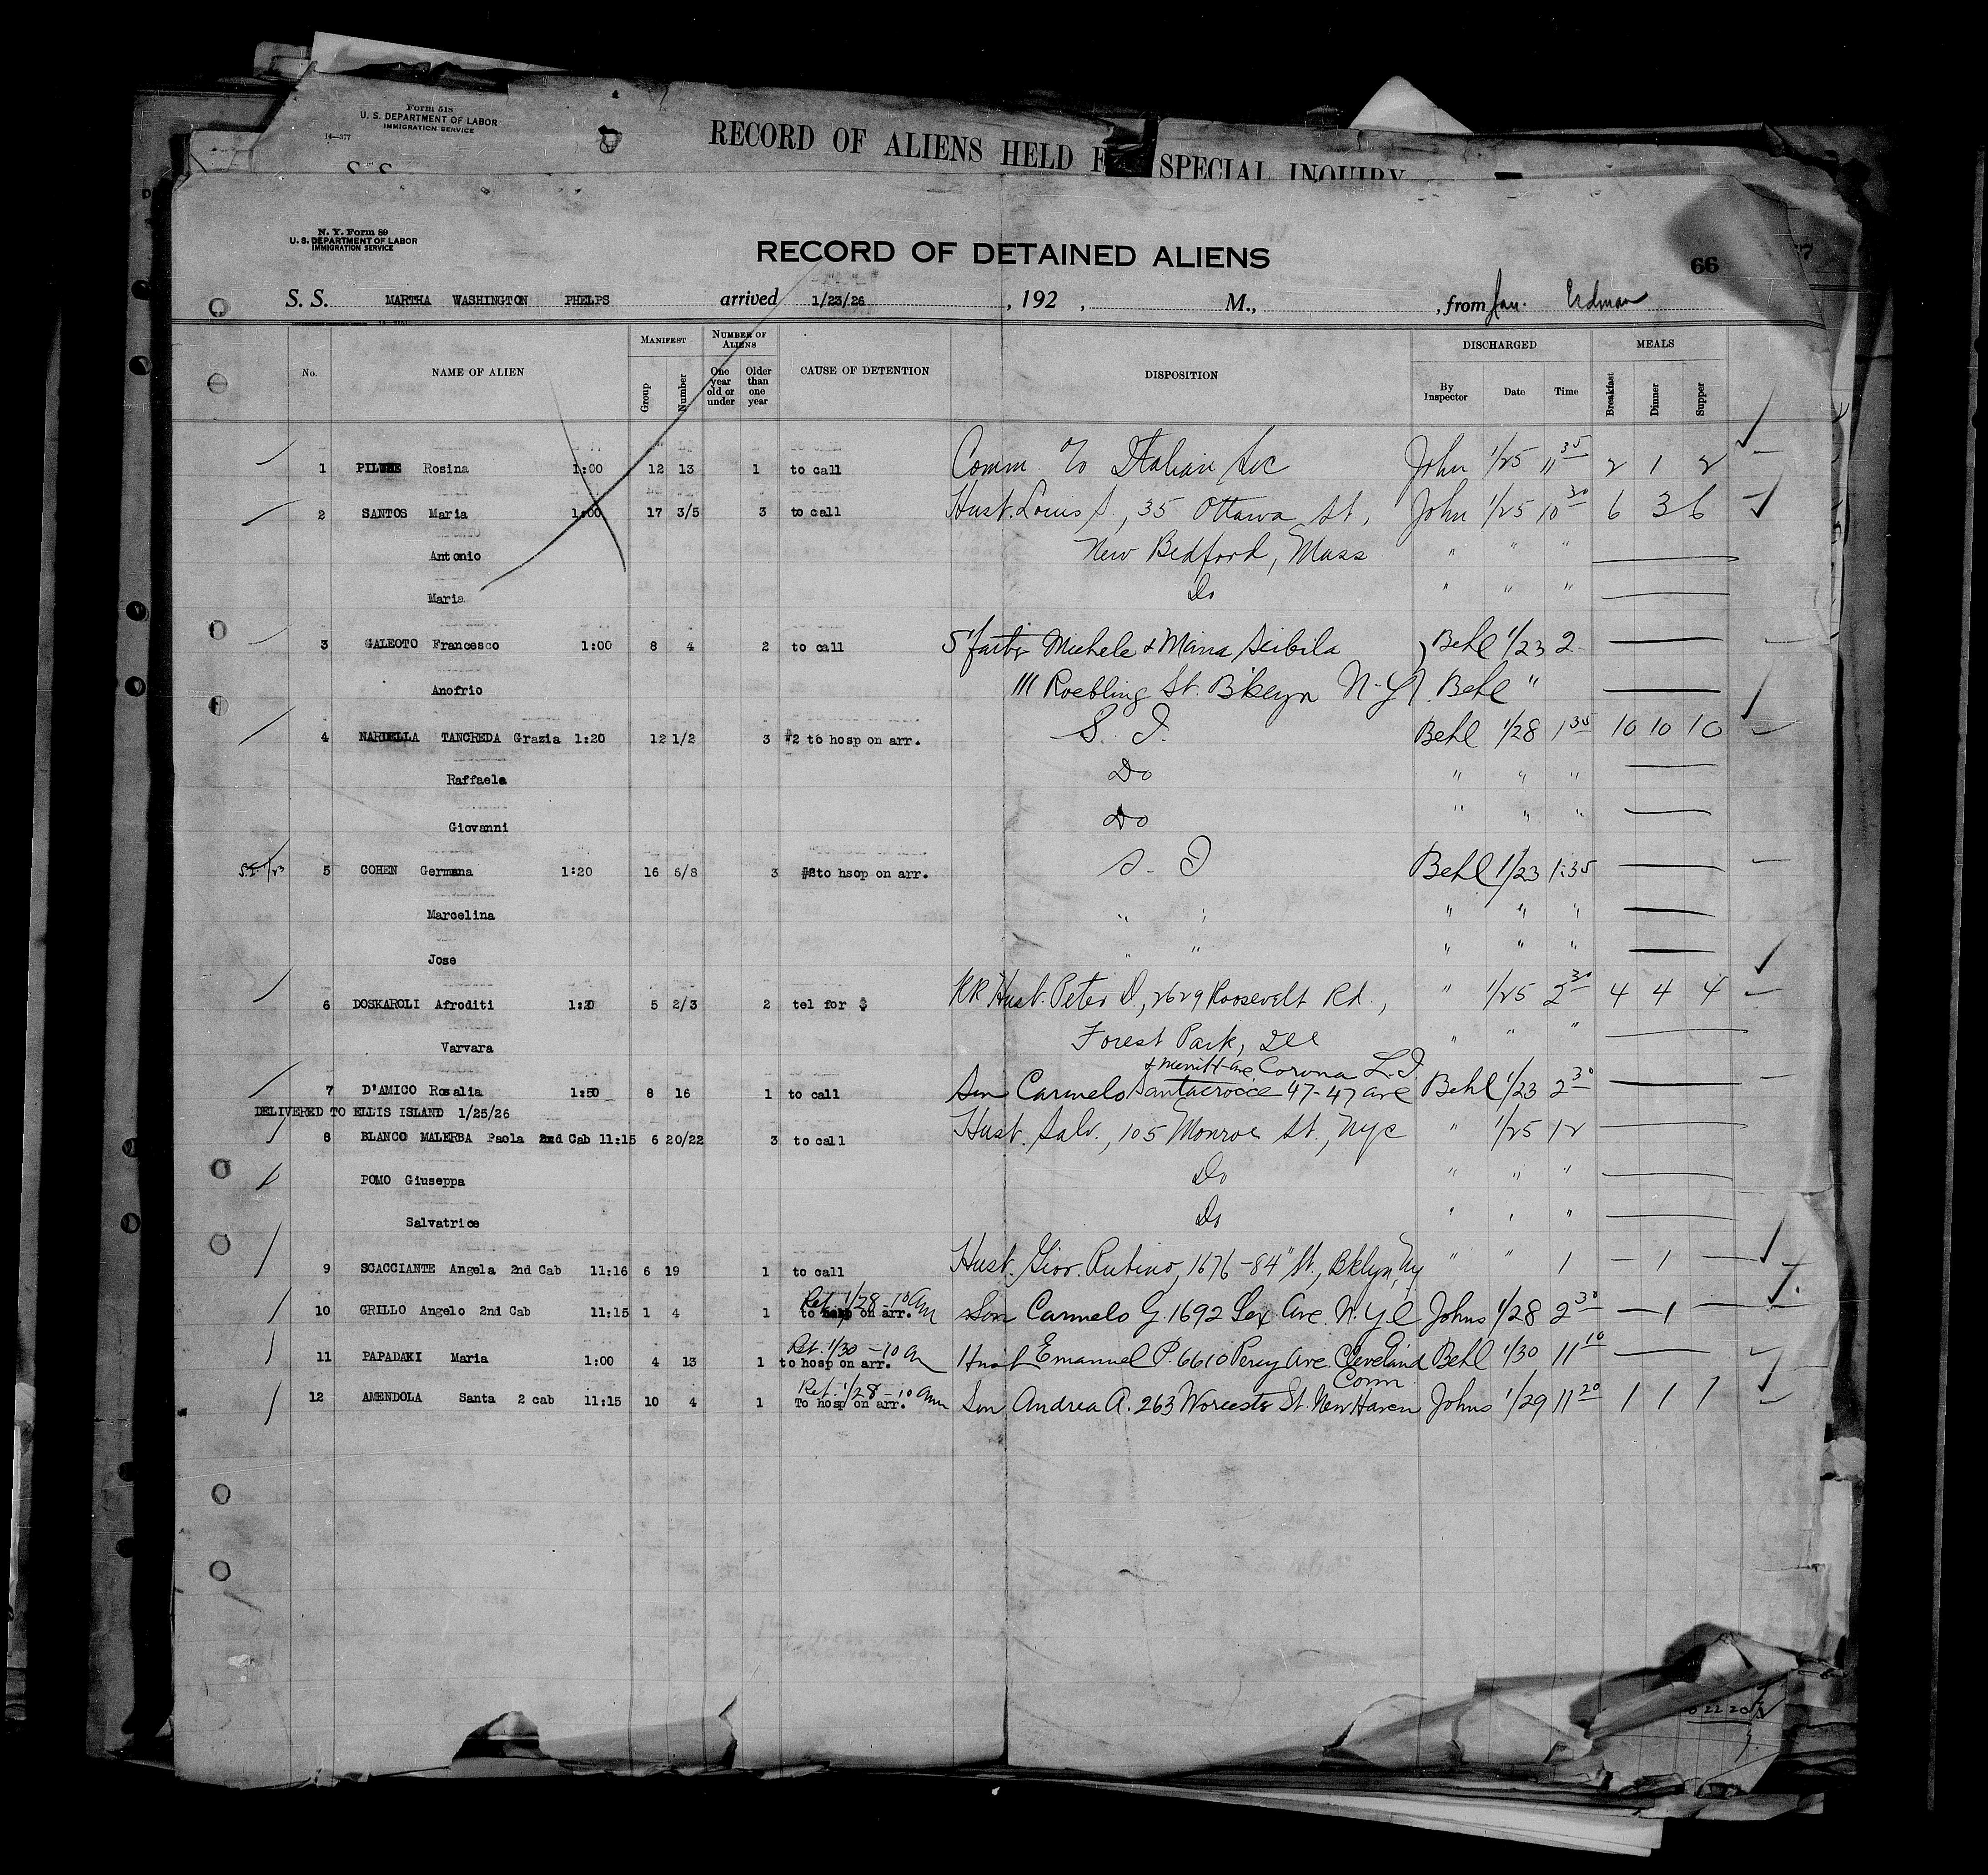 Form 518
U. S. DEPARTMENT OF LABOR
IMMIGRATION SERVICE
14—377
RECORD OF ALIENS HELD F SPECIAL INQUIRY
N. Y. Form 89
U. S. DEPARTMENT OF LABOR
IMMIGRATION SERVICE
RECORD OF DETAINED ALIENS
66
S. S. MARTHA WASHINGTON PHELPS arrived 1/23/26, 192 , M., , from Jan. Erdman
No. NAME OF ALIEN MANIFEST Group Number NUMBER OF ALIENS One year old or under Older than one year CAUSE OF DETENTION DISPOSITION DISCHARGED By Inspector Date Time MEALS Breakfast Dinner Supper
1 Rosina 1:00 12 13 1 to call Comm. % Italian Soc John 1/25 11 35 2 1 2
2 SANTOS Maria 1:00 17 3/5 3 to call Husb. Louis S., 35 Ottawa St., John 1/25 10 30 6 3 6
Antonio New Bedford, Mass " " "
Maria Do " " "
3 GALEOTO Francesco 1:00 8 4 2 to call Michele & Maria Scibila Behl 1/23 2
Anofrio 111 Roebling St. B'klyn N-Y Behl "
4 NARDELLA TANCREDA Grazia 1:20 12 1/2 3 #2 to hosp on arr. S. I. Behl 1/28 1 35 10 10 10
Raffaela Do " " "
Giovanni Do " " "
S.I. 1/23 5 COHEN Germana 1:20 16 6/8 3 #2to hsop on arr. S. I Behl 1/23 1:35
Marcelina " " " " "
Jose " " " " "
6 DOSKAROLI Afroditi 1:20 5 2/3 2 tel for $ RR Husb. Peter D., 2629 Roosevelt Rd., " 1/25 2 30 4 4 4
Varvara Forest Park, Ill " " "
& Merritt Ave Corona L.I.
7 D'AMICO Rosalia 1:50 8 16 1 to call Son Carmelo Santacroce 47-47 ave Behl 1/23 2 30
DELIVERED TO ELLIS ISLAND 1/25/26
8 BLANCO MALERBA Paola 2nd Cab 11:15 6 20/22 3 to call Husb. Salv., 105 Monroe St., Nyc " 1/25 12
POMO Giuseppa Do " " "
Salvatrice Do " " "
9 SCACCIANTE Angela 2nd Cab 11:16 6 19 1 to call Husb. Giov. Rubino, 1676-84" St., Bklyn, Ny " " 1 — 1 —
Ret. 1/28-10 Am
10 GRILLO Angelo 2nd Cab 11:15 1 4 1 to hosp on arr. Son Carmelo G. 1692 Lex Ave. N.Y.C Johns 1/28 2 30 — 1 —
Ret. 1/30-10 a
11 PAPADAKI Maria 1:00 4 13 1 to hosp on arr. Husb Emanuel P. 6610 Percy Ave. Cleveland Behl 1/30 11 10
Ret. 1/28-10 am Conn
12 AMENDOLA Santa 2 cab 11:15 10 4 1 To hosp on arr. Son Andrea A. 263 Worcester St. New Haven Johns 1/29 11 20 1 1 1